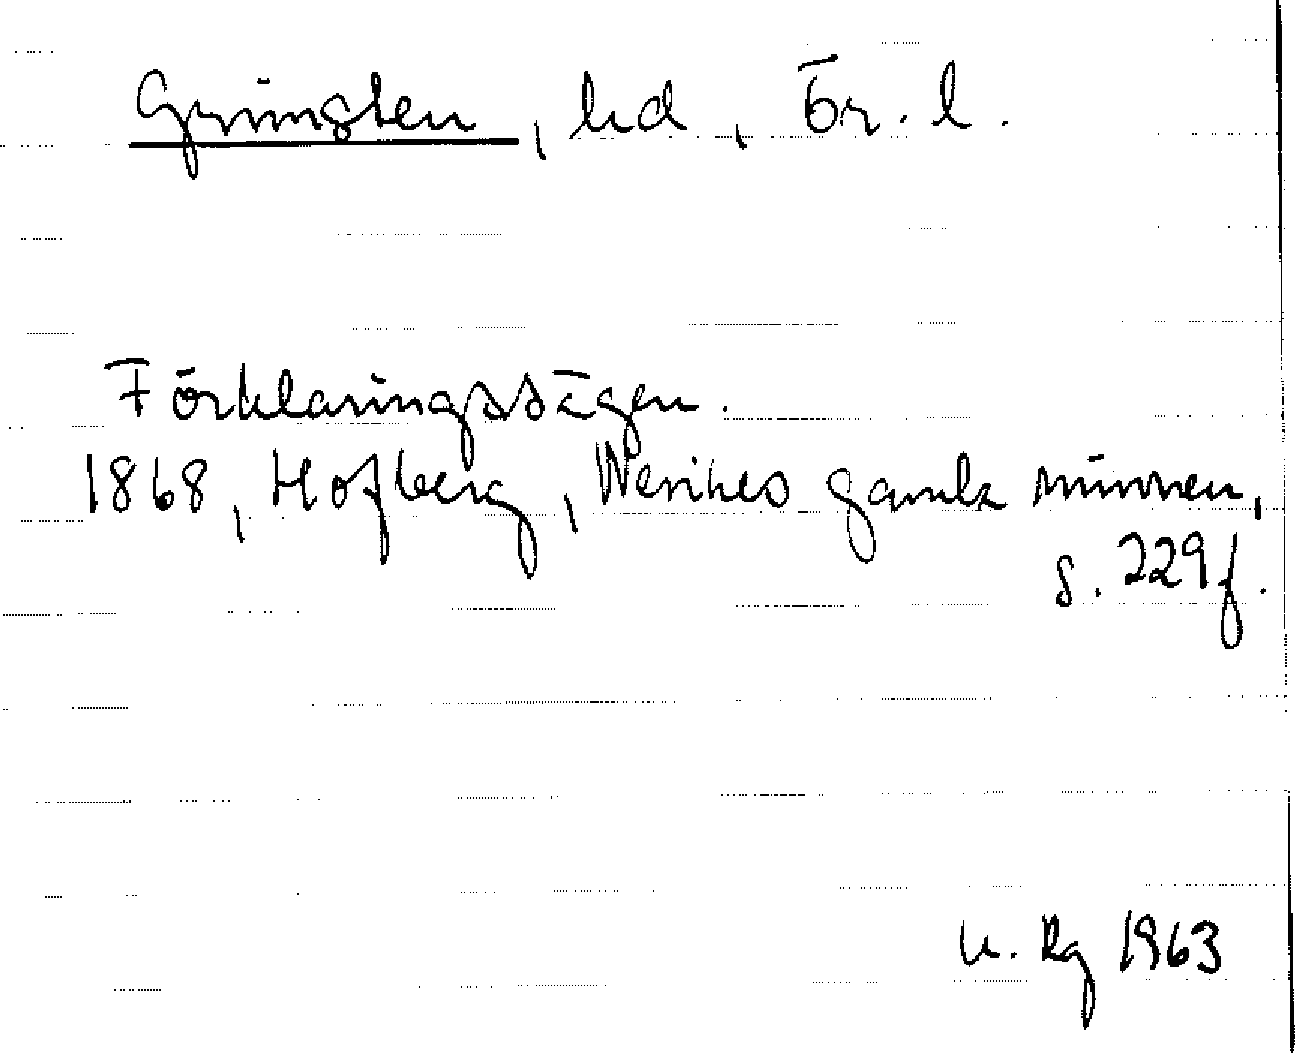 Grimsten, hd, Ör. l.
Förklaringssägen.
1868, Hofberg, Nerikes gamla minnen,
s. 229f.
Rg 1963